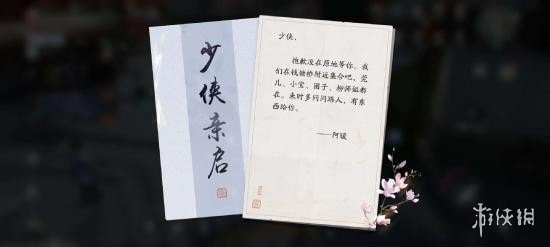 少侠亲启
少侠，
抱歉没在原地等你。我
们在钱塘桥附近集合吧，莞
儿、小宝、团子、粉浮姐都
在。来时多问问路人，有东
西给你。
——阿暖
游侠网